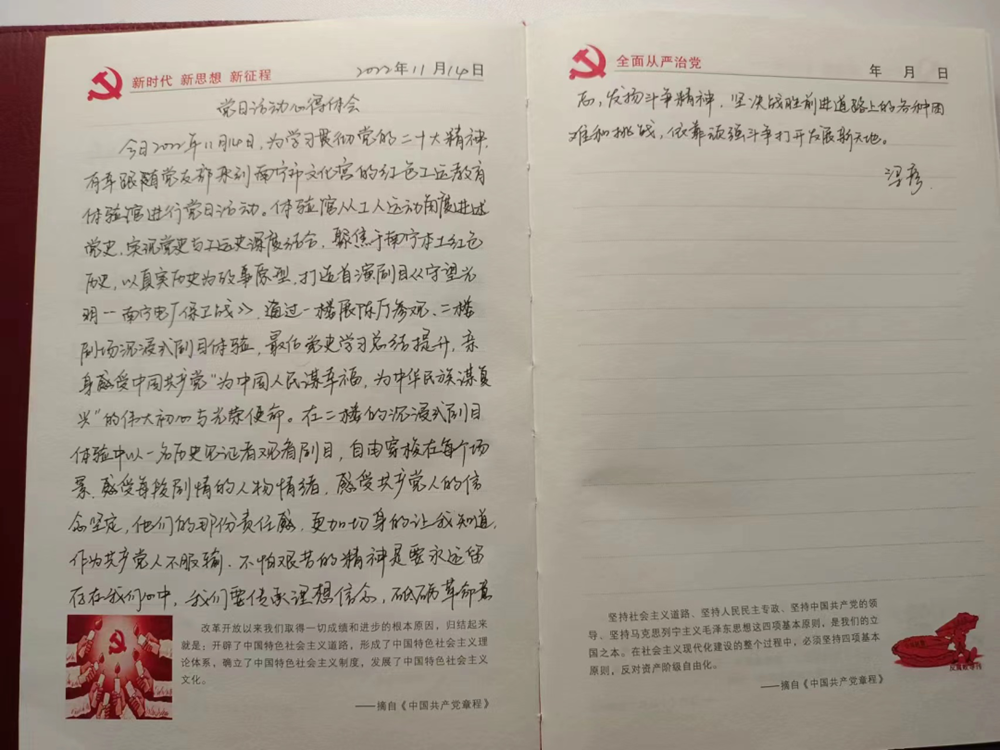 新时代 新思想 新征程
2022年11月14日
党日活动心得体会
今日2022年11月14日，为学习贯彻党的二十大精神，
有幸跟随党支部来到南宁市文化宫的红色工运教育
体验馆进行党日活动。体验馆从工人运动角度讲述
党史，实现党史与工运史深度结合，聚焦于南宁本土红色
历史，以真实历史为故事原型，打造首演剧目《守望光
明——南宁电厂保卫战》，通过一楼展陈厅参观、二楼
剧场沉浸式剧目体验，最后党史学习总结提升，亲
身感受中国共产党“为中国人民谋幸福，为中华民族谋复
兴”的伟大初心与光荣使命。在二楼的沉浸式剧目
体验中以一名历史见证者观看剧目，自由穿梭在每个场
景，感受每段剧情的人物情绪，感受共产党人的信
念坚定，他们的那份责任感，更加切身的让我知道，
作为共产党人不服输、不怕艰苦的精神是要永远留
存在我们心中，我们要传承理想信念，砥砺革命意
改革开放以来我们取得一切成绩和进步的根本原因，归结起来
就是：开辟了中国特色社会主义道路，形成了中国特色社会主义理
论体系，确立了中国特色社会主义制度，发展了中国特色社会主义
文化。
——摘自《中国共产党章程》
全面从严治党
年 月 日
志，发扬斗争精神，坚决战胜前进道路上的各种困
难和挑战，依靠顽强斗争打开发展新天地。
坚持社会主义道路、坚持人民民主专政、坚持中国共产党的领
导、坚持马克思列宁主义毛泽东思想这四项基本原则，是我们的立
国之本。在社会主义现代化建设的整个过程中，必须坚持四项基本
原则，反对资产阶级自由化。
——摘自《中国共产党章程》